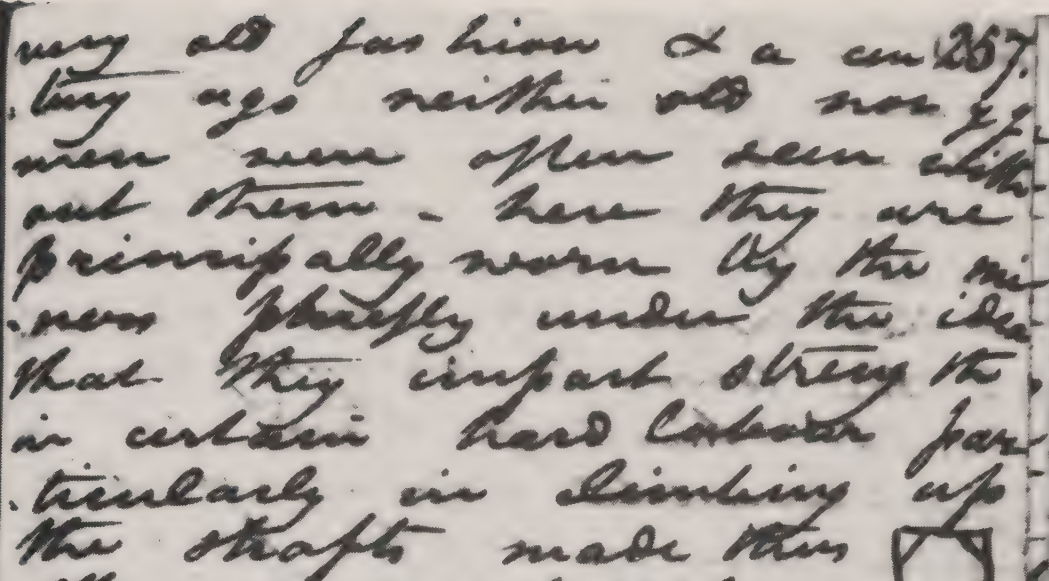 very old fashion & a cen 257.
.tury ago neither old nor yg.
men were often seen with
out them - here they are
principally worn by the mi
.ners pharsfly under the idea
that they impart streng th
in certain hard Labour par
.ticularly in climbing up
the shafts made thus